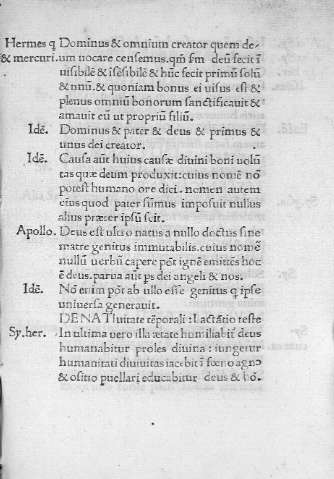 Hermes q Dominus & omnium creator quem de-
& mercuri. um uocare censemus. qm̄ sm̄ deū fecit ī
uisibilē & īsēsibilē & hūc fecit primū solū
& unū. & quoniam bonus ei uisus est &
plenus omniū bonorum sanctificauit &
amauit eū ut propriū filiū.
Idē. Dominus & pater & deus & primus &
unus dei creator.
Idē. Causa aūt huius causæ diuini boni uolū
tas quæ deum produxit: cuius nomē nō
potest humano ore dici. nomen autem
eius quod pater sūmus imposuit nullus
alius præter ipsū scit.
Apollo. Deus est ultro natus a nullo doctus sine
matre genitus immutabilis. cuius nomē
nullū uerbū capere pōt ignē emittēs hoc
ē deus. parua aūt ps dei angeli & nos.
Idē. Nō enim pōt ab ullo esse genitus q ipse
uniuersa generauit.
DE NATIuitate tēporali: Lactātio teste
Sy.her. In ultima uero illa ætate humiliabit̄ deus
humanabitur proles diuina: iungetur
humanitati diuinitas iacebit ī fœno agnꝰ
& ofitio puellari educabitur deus & hō.